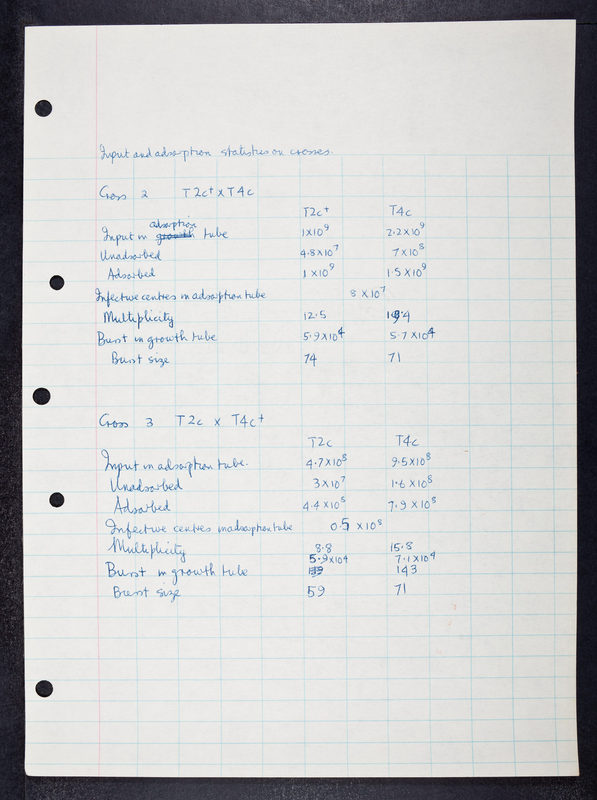 Input and adsorption statistics on crosses.
Cross 2 T2c⁺ x T4c
T2c⁺ T4c
adsorption
Input in growth tube 1x10⁹ 2.2x10⁹
Unadsorbed 4.8x10⁷ 7x10⁸
Adsorbed 1x10⁹ 1.5x10⁹
Infective centres in adsorption tube 8x10⁷
Multiplicity 12.5
Burst in growth tube 5.9x10⁴ 5.7x10⁴
Burst size 74 71
Cross 3 T2c x T4c⁺
T2c T4c
Input in adsorption tube. 4.7x10⁸ 9.5x10⁸
Unadsorbed 3x10⁷ 1.6x10⁸
Adsorbed 4.4x10⁸ 7.9x10⁸
Infective centres in adsorption tube 0.5x10⁸
Multiplicity 8.8 15.8
5.9x10⁴ 7.1x10⁴
Burst in growth tube 143
Burst size 59 71